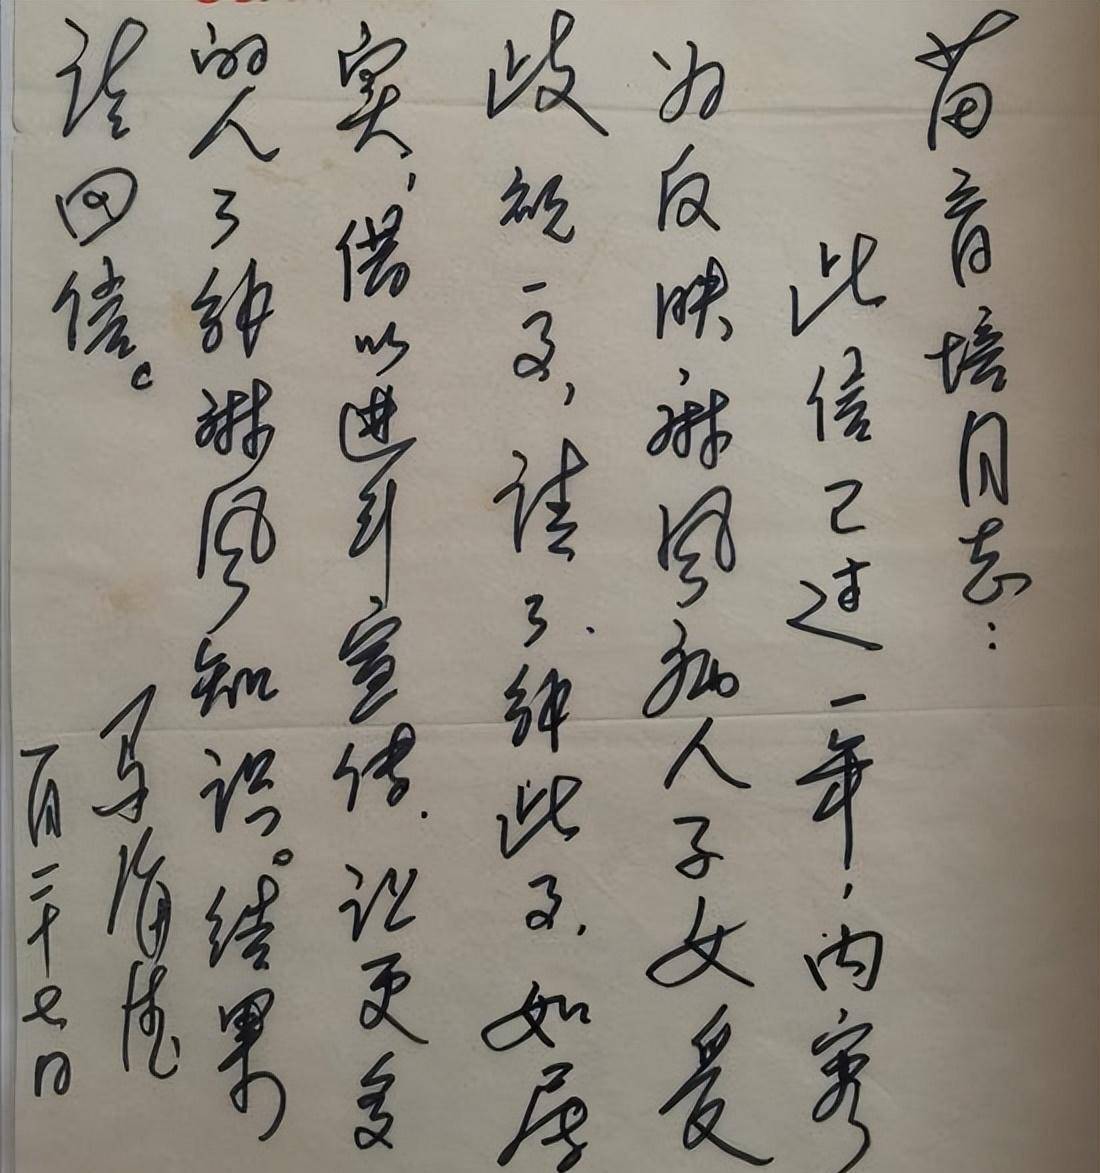 苗育培同志：
此信已过一年，内容
为反映麻风病人子女受
歧视一事，请了解此事，如属
实，借以进行宣传，让更多
的人了解麻风知识。结果
请回信。
马海德
一月二十七日